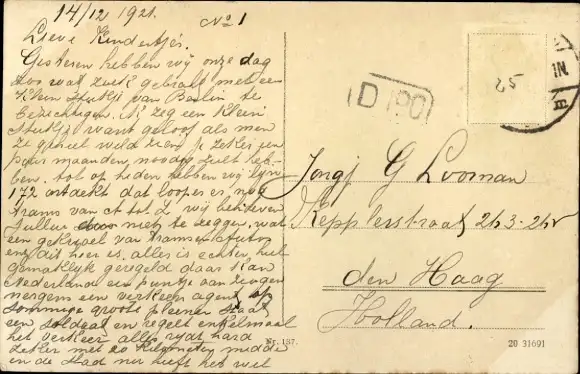 14/12 1921.
No 1
Lieve Kindertjes.
Gisteren hebben wij onze dag
zoo wat zoek gebracht met een
Klein stukje van Berlin te
bezichtigen. Ik zeg een klein
stukje want geloof als men
ze geheel wild zien je zeker een
paar maanden noodig zult heb-
ben. tot op heden hebben wij lijn
172 ontdekt dat loopen er nog
trams van A tot Z wij behoeven
Jullie dus niet te zeggen, wat
een gekrioel van trams en autos
enz dit hier is. alles is echter, heel
gemakkelijk geregeld daar kan
Nederland een puntje aan zuigen
nergens een verkeers agent op
sommige groote pleenen staat
een soldaat en regelt enkelmaal
het verkeer alles rijdt hard
zeker met 20 kilometer midden
in de stad nu heeft het wel
D PC
25
IN
Jongj G Looman
Kepplerstraat 213-215
den Haag
Holland.
Nr. 137.
20 31691